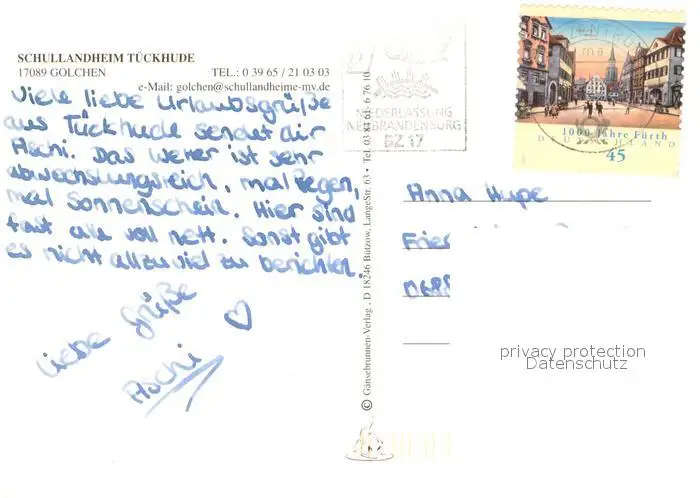 SCHULLANDHEIM TÜCKHUDE
17089 GOLCHEN TEL.: 0 39 65 / 21 03 03
e-Mail: golchen@schullandheime-mv.de
Viele liebe Urlaubsgrüße
aus Tückhude sendet dir
Aschi. Das Wetter ist sehr
abwechslungsreich, mal Regen,
mal Sonnenschein. Hier sind
fast alle voll nett. Sonst gibt
es nicht allzuviel zu berichten.
Liebe Grüße
Aschi
© Gänsebrunnen-Verlag . D 18246 Bützow, LangeStr. 63 • Tel. 03 84 61- 6 76 10
NIEDERLASSUNG
NEUBRANDENBURG
BZ 17
1000 Jahre Fürth
DEUTSCHLAND
45
Anna Hupe
Frie
068
privacy protection
Datenschutz